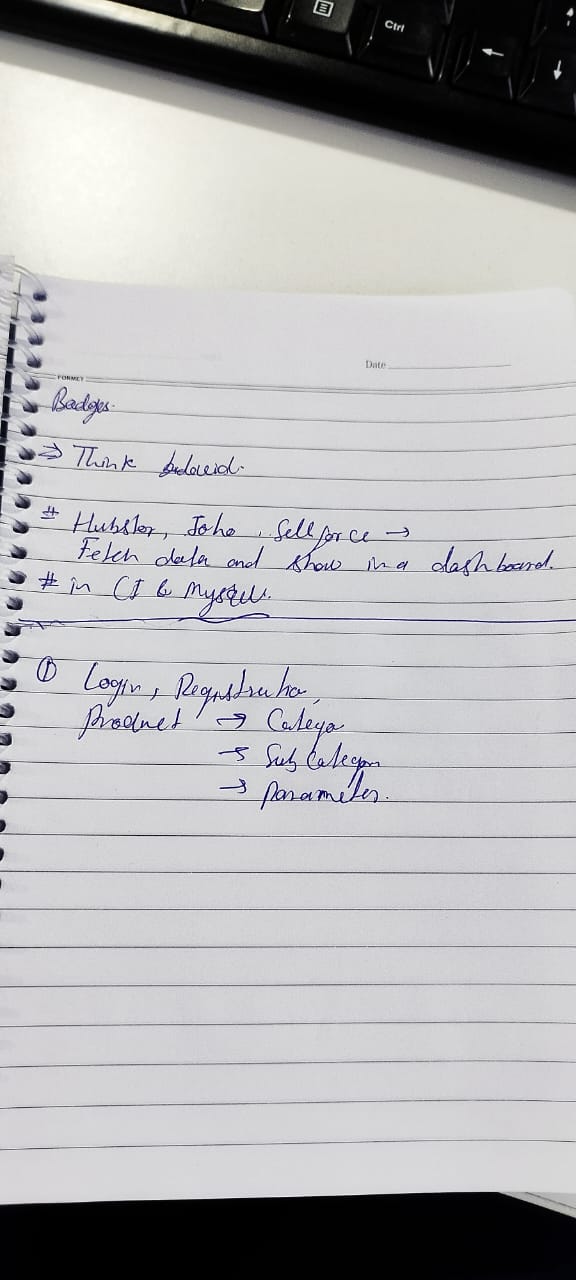 Ctrl
Date
FORMET
Badges.
⇒ Think
# Hubster, Joho, Sellforce →
Fetch data and show in a dashboard.
# in CI & Mysqll.
① Login, Registratio,
Product → Catego
→ Sub Categon
→ Parameter.